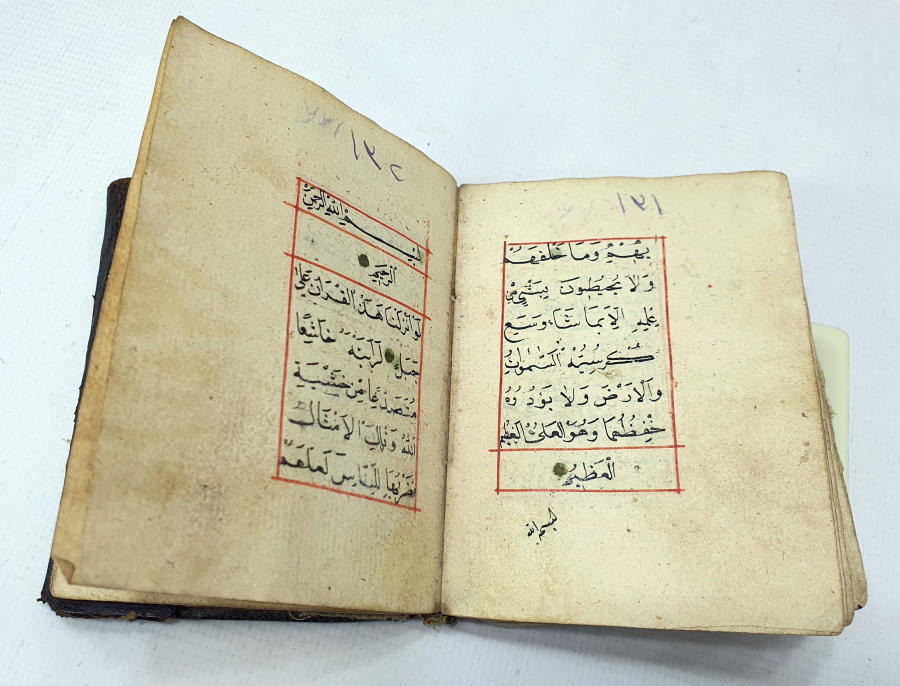 ١٣١
يهم وما خلفهم
ولا يحيطون بشئ من
علمه الا بما شاء وسع
كرسيه السموات
والارض ولا يؤده
حفظهما وهو العلى العظيم
العظيم
بسم الله
١٣٢
بسم الله الرحمن
الرحيم
لو انزلنا هذا القران على
جبل لرايته خاشعا
متصدعا من خشية
الله وتلك الامثال
نضربها للناس لعلهم